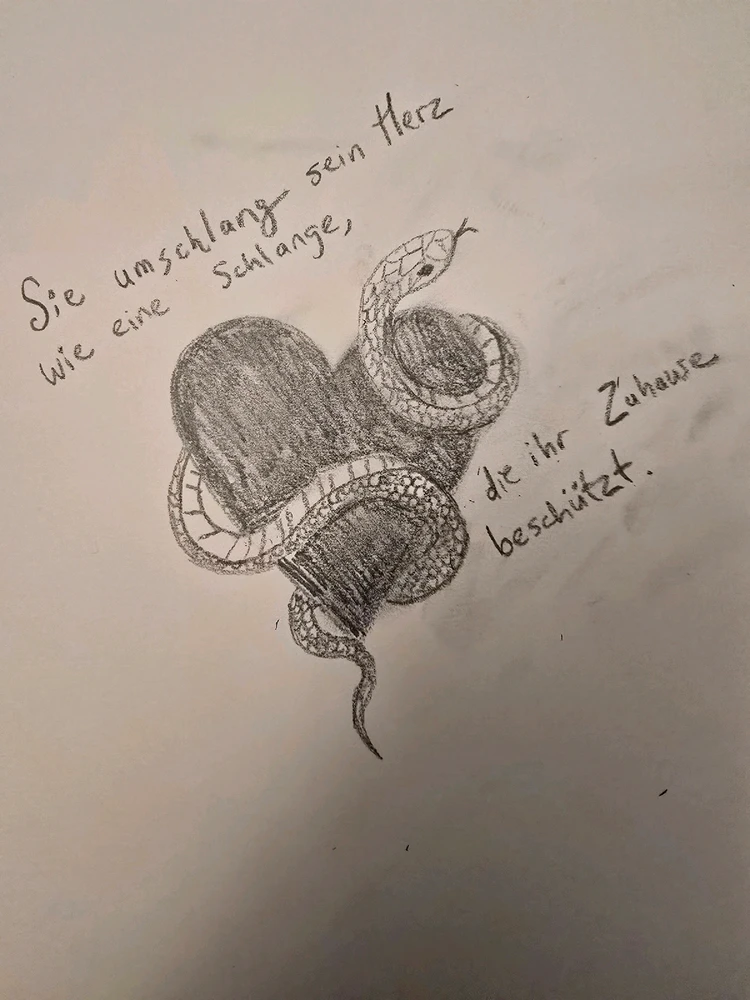 Sie umschlang sein Herz
wie eine Schlange,
die ihr Zuhause
beschützt.